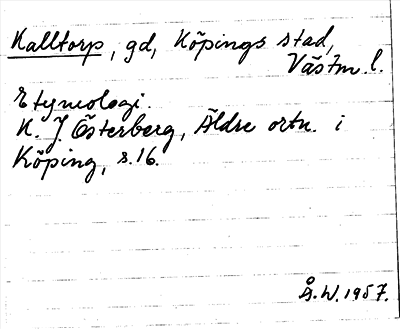 Kalltorp, gd, Köpings stad,
Västm. l.
Etymologi.
K. J. Österberg, Äldre ortn. i
Köping, s. 16.
Å. W. 1957.